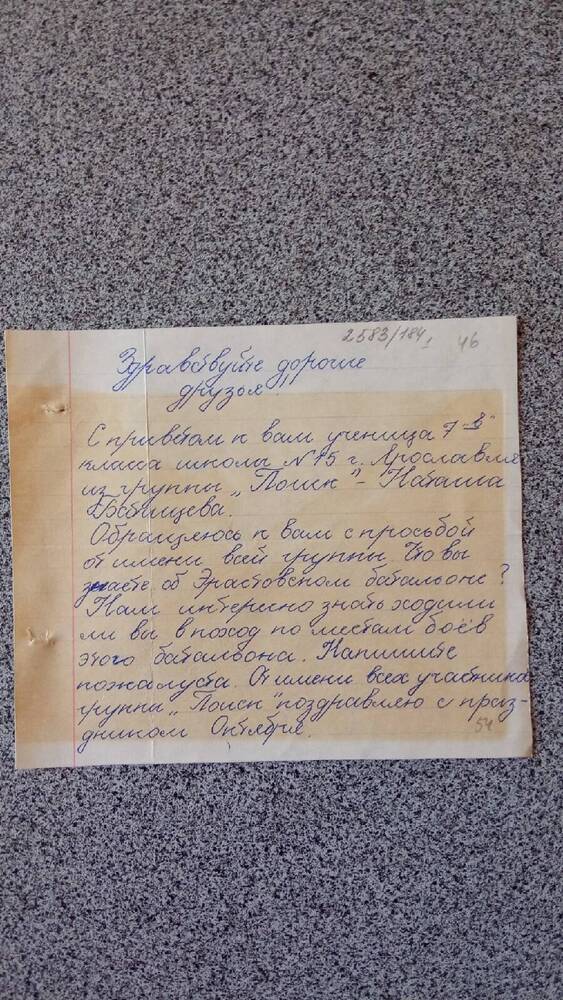 2583/184₁ 46
Здравствуйте дорогие
друзья!
С приветом к вам ученица 7 "В"
класса школы №15 г. Ярославля
из группы „Поиск" - Наташа
Обращаюсь к вам с просьбой
от имени всей группы. Что вы
знаете об Эрастовском батальоне?
Нам интересно знать ходили
ли вы в поход по местам боёв
этого батальона. Напишите
пожалуста. От имени всех участников
группы „Поиск" поздравляю с праз-
дником Октября.
54